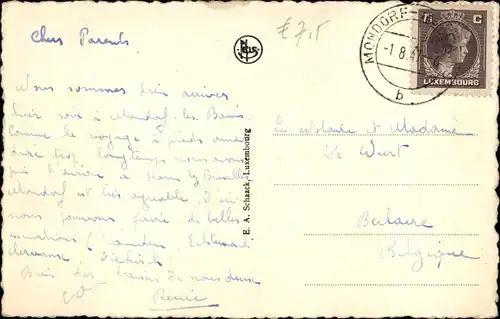 Chers Parents,
Nous sommes bien arrivés
hier soir à Mondorf les Bains.
Comme le voyage à pieds
trop longtemps nous avons
pris l'avion à Bruxelles
Mondorf est très agréable. D'ici
nous pouvons faire de belles
excursions (Vianden Echternach
Clervaux Diekirch
Bien des baisers de nous deux
Renée
£7,5
Nels
E. A. Schaack, Luxembourg
MONDORF
-1.8.4
b
1¾ C
LUXEMBOURG
Le Notaire et Madame
De Wert
Berlaere
Belgique